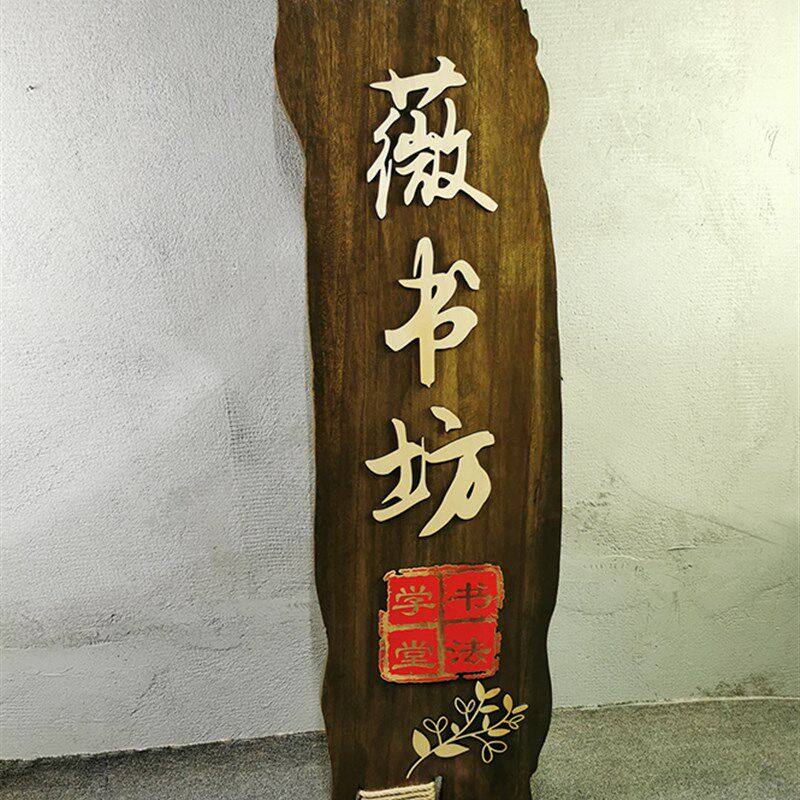 薇书坊
书法
学堂